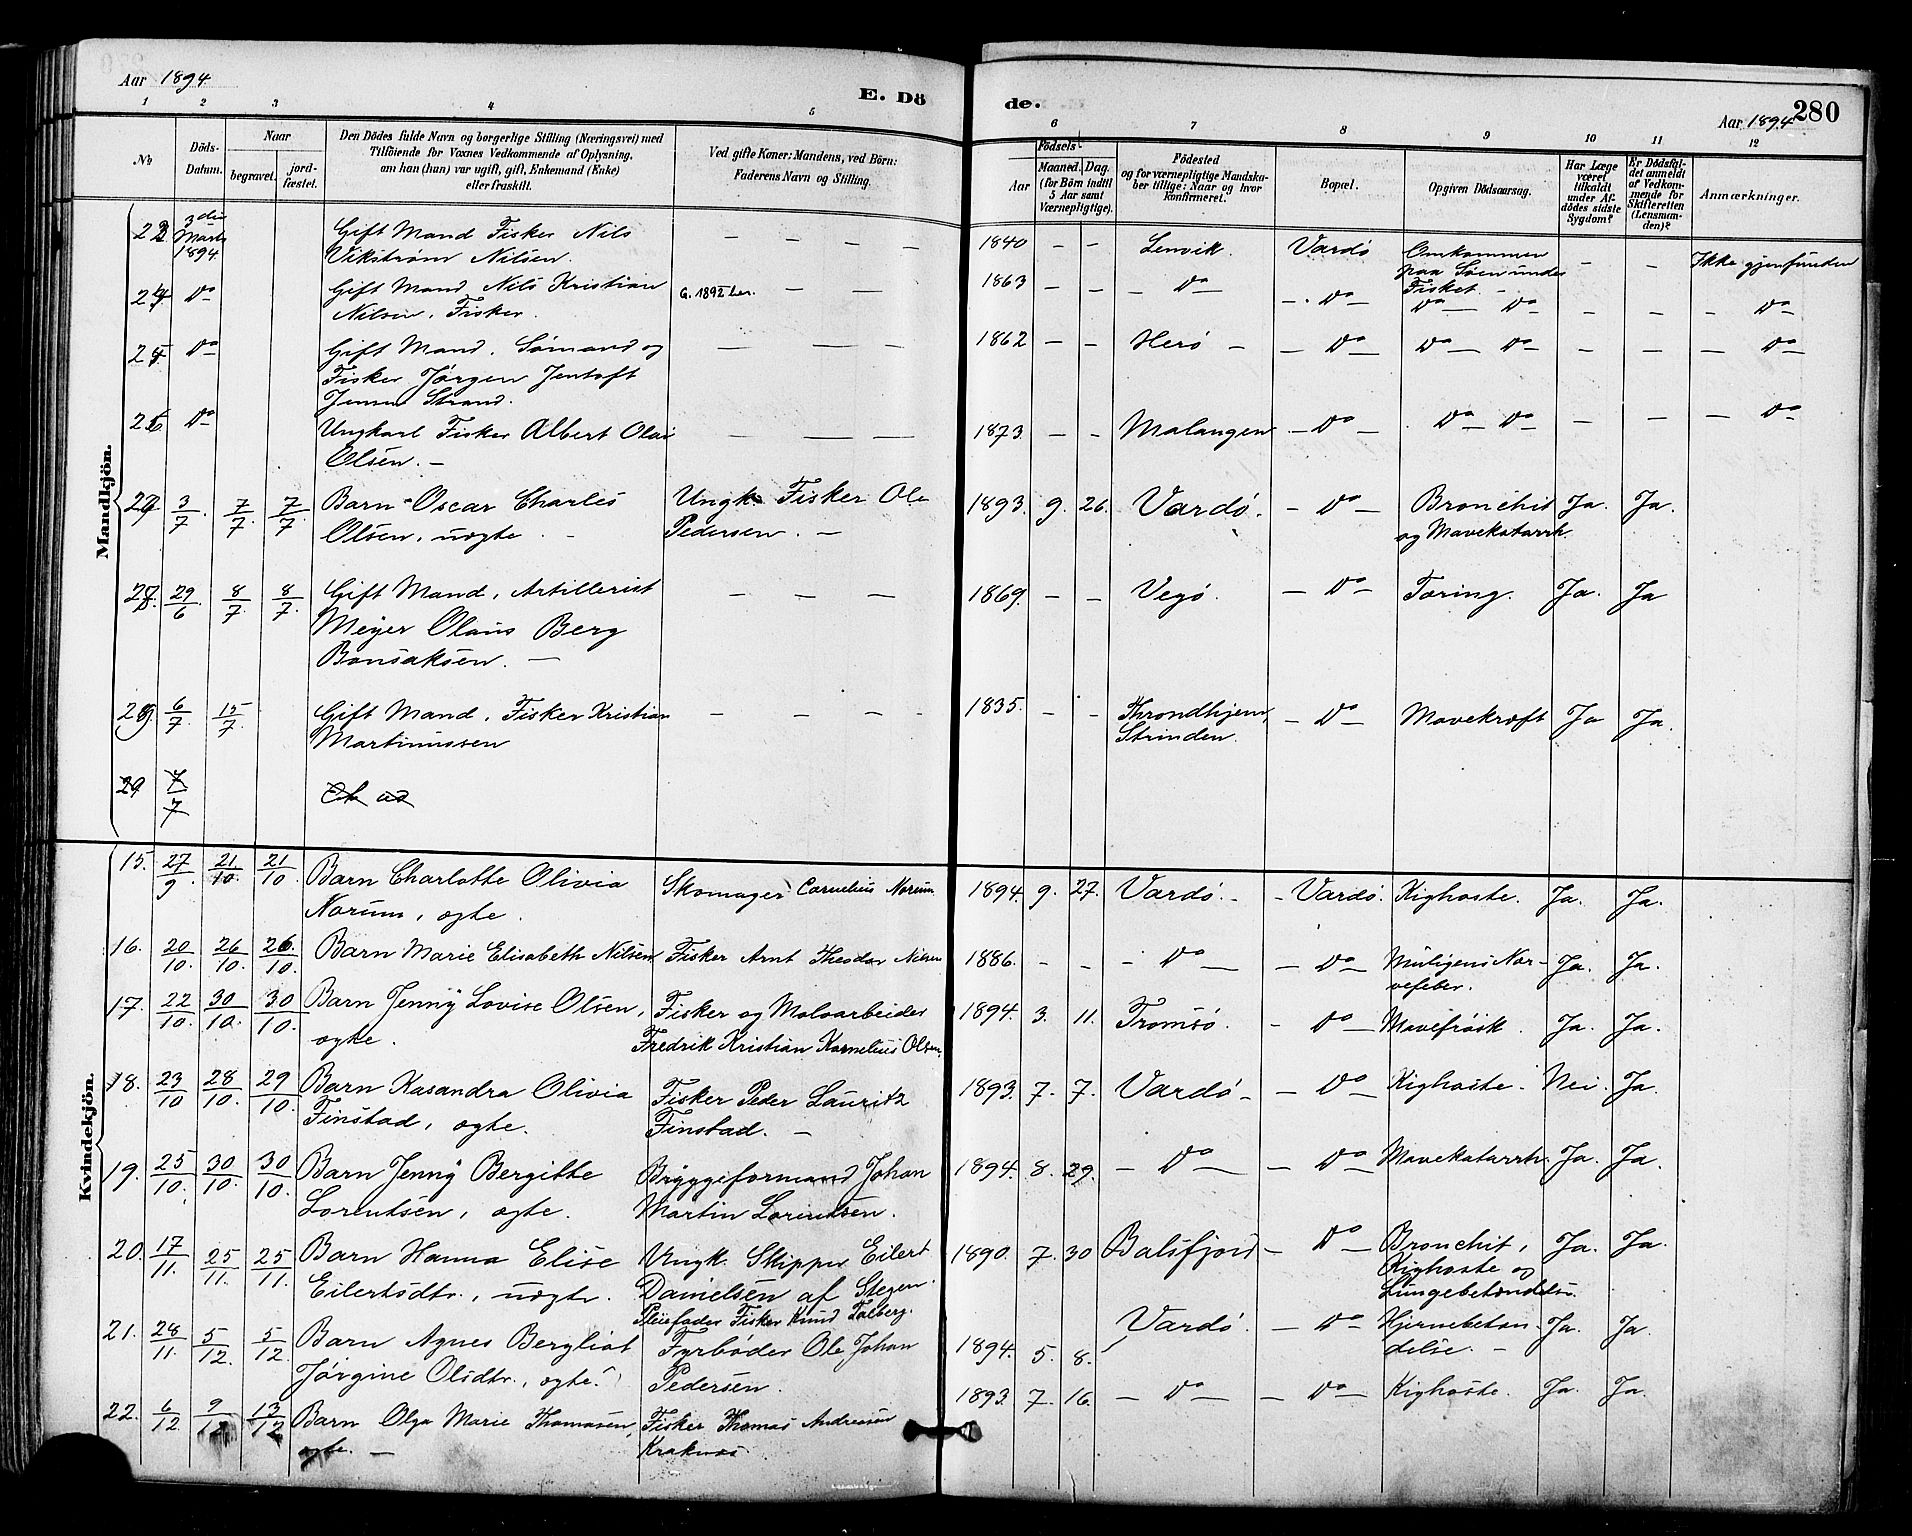 Aar 1894
E. Dö
de.
Aar 1894
280
1 2 3 4 5 6 7 8 9 10 11 12
No
Döds-
Datum.
Naar
begravet. jord-
fæstet.
Den Dödes fulde Navn og borgerlige Stilling (Næringsvei) med
Tilföiende for Voxnes Vedkommende af Oplysning,
om han (hun) var ugift, gift, Enkemand (Enke)
eller fraskilt.
Ved gifte Koner: Mandens, ved Börn:
Faderens Navn og Stilling.
Födsels
Aar Maaned. Dag.
(for Börn indtil
5 Aar samt
Værnepligtige).
Födested
og for værnepligtige Mandska-
ber tillige: Naar og hvor
konfirmeret.
Bopæl.
Opgiven Dödsaarsag.
Har Læge
været
tilkaldt
under Af-
dödes sidste
Sygdom?
Er Dödsfal-
det anmeldt
af Vedkom-
mende for
Skifteretten
(Lensman-
den)?
Anmærkninger.
Mandkjön.
3die Marts 1894 Gift Mand Fisker Nils — — — — 1840 — — Lenvik. Vardö Omkommen — — Ikke gjenfunden
Vikstrøm Nilsen. paa Søen under
Fisket. —
Do Gift Mand Nils Kristian G. 1892 Len. — — 1863 — — — Do — Do — Do — Do — — — Do
Nilsen, Fisker.
Do Gift Mand. Sømand og — — — 1862 — — Herö — — Do — Do — Do — — — Do
Fisker Jørgen Jentoft
Jensen Strand.
Do Ungkarl Fisker Albert Olai — — — 1873. — — Malangen — Do — Do — Do — — — — Do
Olsen. —
3/7 7/7. 7/7 Barn Oscar Charles Ungk. Fisker Ole 1893. 9. 26. Vardö. — Do — Bronchit Ja. Ja.
Olsen, uægte. Pedersen. — og Mavekatarrh.
29/6 8/7 8/7 Gift Mand, Artillerist — — — 1869. — — Vegö. — Do — Tæring. Ja. Ja
Meyer Olaus Berg
Bonsaksen. —
6/7 15/7 Gift Mand, Fisker Kristian — — — 1835. — — Throndhjem, — Do — Mavekræft Ja Ja.
Martinussen Strinden.
29 7/7
Kvindekjön.
15. 27/9 21/10. 21/10 Barn Charlotte Olivia Skomager Cornelius Norum 1894. 9. 27. Vardö. — — Vardö. Kighoste. Ja. Ja.
Norum, ægte.
16. 20/10. 26/10. 26/10. Barn Marie Elisabeth Nilsen Fisker Arnt Theodor Nilsen 1886. — — — Do — — Do — Muligens Ner- Ja. Ja.
vefeber.
17. 22/10. 30/10. 30/10. Barn Jenny Lovise Olsen, Fisker og Moloarbeider 1894. 3. 11. Tromsö. — Do — Ja. Ja.
ægte. Fredrik Kristian Kornelius Olsen.
18. 23/10 28/10. 29/10. Barn Kasandra Olivia Fisker Peder Lauritz 1893. 7. 7. Vardö — — Do — Kighoste. Nei. Ja.
Finstad, ægte. Finstad. —
19. 25/10. 30/10. 30/10. Barn Jenny Bergitte Bryggeformand Johan 1894. 8. 29. — Do — — Do — Mavekatarrh. Ja. Ja.
Lorentsen, ægte. Martin Lorentsen.
20. 17/11. 25/11. 25/11. Barn Hanna Elise Ungk. Skipper Eilert 1890. 7. 30 Balsfjord — Do — Bronchit, Ja. Ja.
Eilertsdtr., uægte. Danielsen af Stegen. Kighoste og
Pleiefader Fisker Knud Falberg. Lungebetændelse.
21. 28/11. 5/12. 5/12. Barn Agnes Bergliot Fyrbøder Ole Johan 1894. 5. 8. Vardö. — Do — Hjernebetæn- Ja. Ja.
Jørgine Olsdtr., ægte. Pedersen. delse. —
22. 6/12. 9/12 13/12 Barn Olga Marie Thomasen, Fisker Thomas Andreasen 1893. 7. 16. — Do — — Do — Kighoste. Ja. Ja.
ægte. — Kraknes